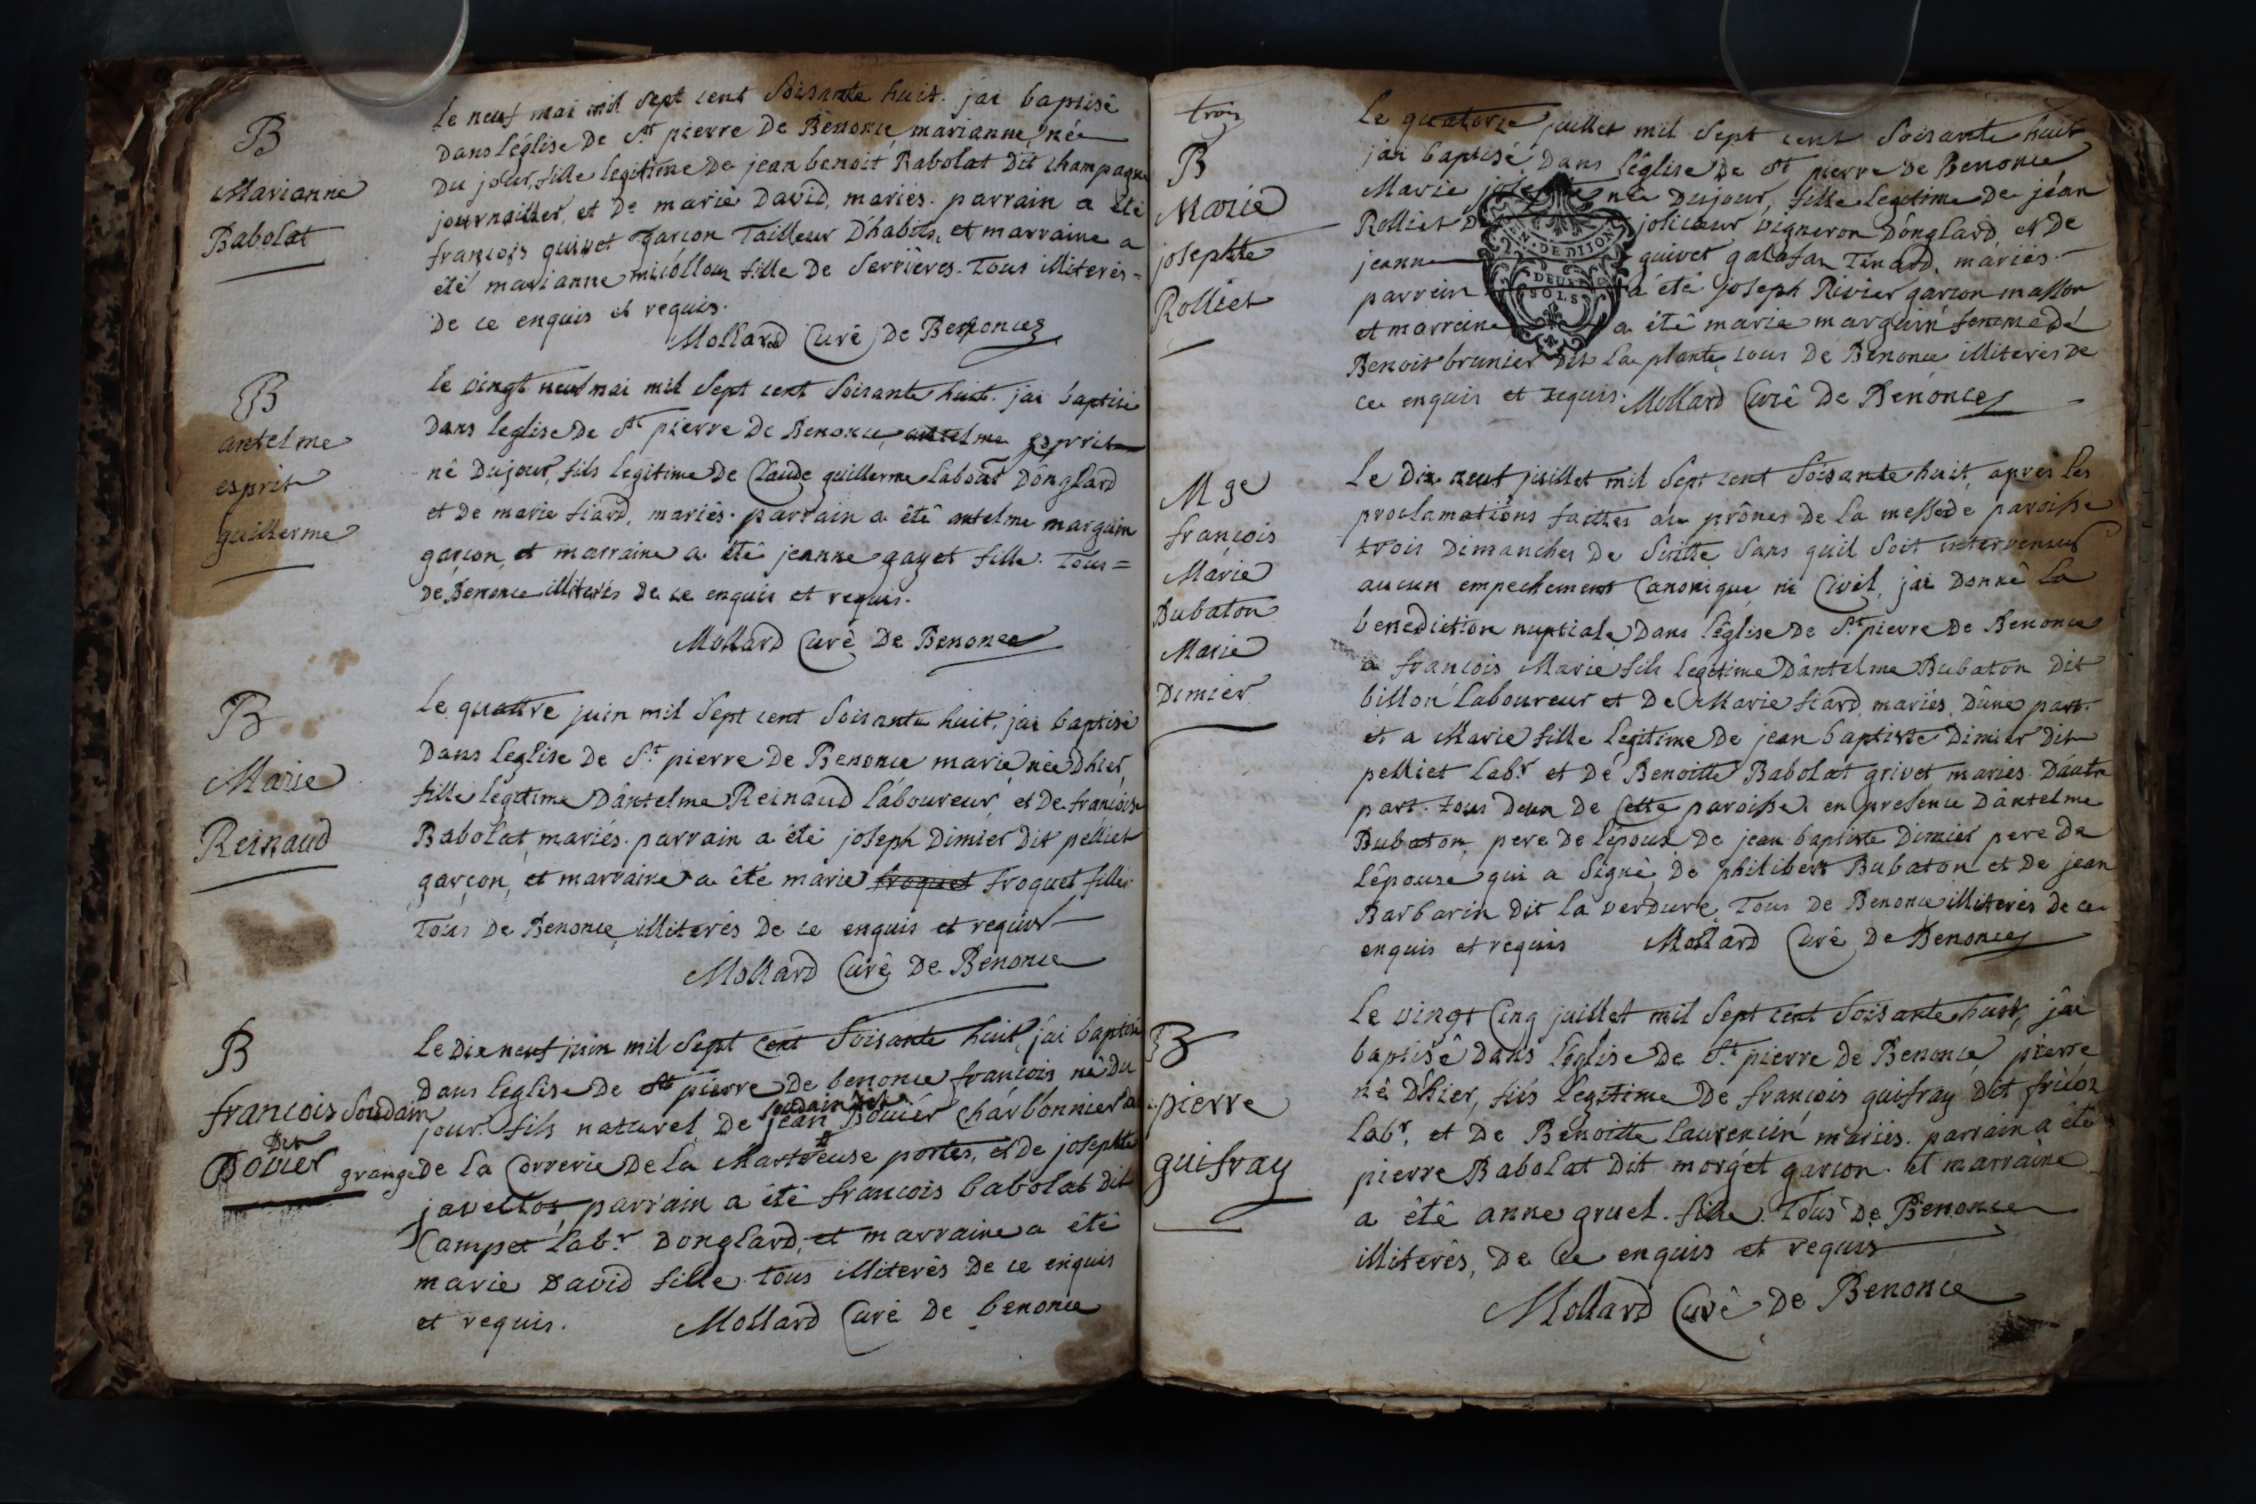 B
Marianne
Babolat
le neuf mai mil sept cent soisante huit. jai baptisé
dans léglise de St pierre de Benonce marianne née
du jour, fille legitime de jean benoit Babolat dit champagne
journailler, et de marie david, mariés. parrain a été
françois guivet garçon Tailleur dhabits, et marraine a
été marianne fille de serrieres. Tous illiterés =
de ce enquis et requis.
Mollard Curé de Benonce
B
antelme
esprit
guillerme
le vingt neuf mai mil sept cent soisante huit. jai baptisé
dans leglise de St pierre de Benonce, antelme esprit
né dujour, fils legitime de Claude guillerme labour dónglard
et de marie siard, mariés. parrain a été antelme marguin
garçon, et marraine a été jeanne gayet fille. Tous =
de Benonce illiterés de ce enquis et requis.
Mollard Curé de Benonce
B
Marie
Reinaud
le quattre juin mil sept cent soisante huit, jai baptisé
dans leglise de St pierre de Benonce marie née dhier,
fille légitime dántelme Reinaud láboureur et de françoise
Babolat, mariés. parrain a été joseph dimier dit pélliet
garçon, et marraine a été marie froquet froquet fille
Tous de Benonce illiterés de ce enquis et requis
Mollard Curé de Benonce
B
françois soudain
dit
Bovier
le dix neuf juin mil sept cent soisante huit, jai baptisé
dans leglise de St pierre de benonce françois né du
soudain dit
jour. fils naturel de jean Bovier chárbonnier a
grange de la Correrie de la Chartreuse portes, et de josephte
javellot, parrain a été françois babolat dit
Campet labr. donglard, et marraine a été
marie david fille. tous illiterés de ce enquis
et requis.
Mollard Curé de benonce
trois
B
Marie
josephte
Rolliet
le quatorze juillet mil sept cent soisante huit
jai baptisé dans léglise de St pierre de Benonce
Marie née dujour, fille legitime de jéan
Rolliet jolicœur vigneron dónglard, et de
jeanne guivet galafan Tenard, mariés.
parrein a été joseph Rivier garçon masson
et marreine a été marie marguin femme de
Benoit brunier dit la plante, tous de Benonce illiterés de
ce enquis et requis. Mollard Curé de Benonce
EN. DE DIJON
DEUX
SOLS
M ge
françois
Marie
Bubaton
Marie
Dimier
Le dix neuf juillet mil sept cent soisante huit, apres les
proclamations faittes au prônes de la messe de paroisse
trois dimanches de suitte sans quil soit intervenus
aucun empechement Canonique ni Civil, jai donné la
benediction nuptiale dans léglise de St pierre de Benonce
a françois Marie fils legitime dántelme Bubaton dit
billon laboureur et de Marie siard, mariés, dúne part.
et a Marie fille legitime de jean baptiste dimier dit
pelliet labr. et de Benoitte Babolat grivet mariés. dáutre
part. tous deux de Cette paroisse. en presence dántelme
Bubaton, pere de lépoux, de jean baptiste dimier pere de
lépouse qui a signé, de philibert Bubaton et de jean
Barbarin dit la verdure, Tous de Benonce illiterés de ce
enquis et requis Mollard Curé de Benonce
B
pierre
guifray
le vingt Cinq juillet mil sept cent soisante huit, jái
baptisé dans léglise de St pierre de Benonce, pierre
né dhier, fils legitime de françois guifray dit
labr. et de Benoitte laurencin mariés. parrain a été
pierre Babolat dit morget garçon. et marraine
a été anne gruel. fille. Tous de Benonce
illiterés, de ce enquis et requis
Mollard Curé de Benonce